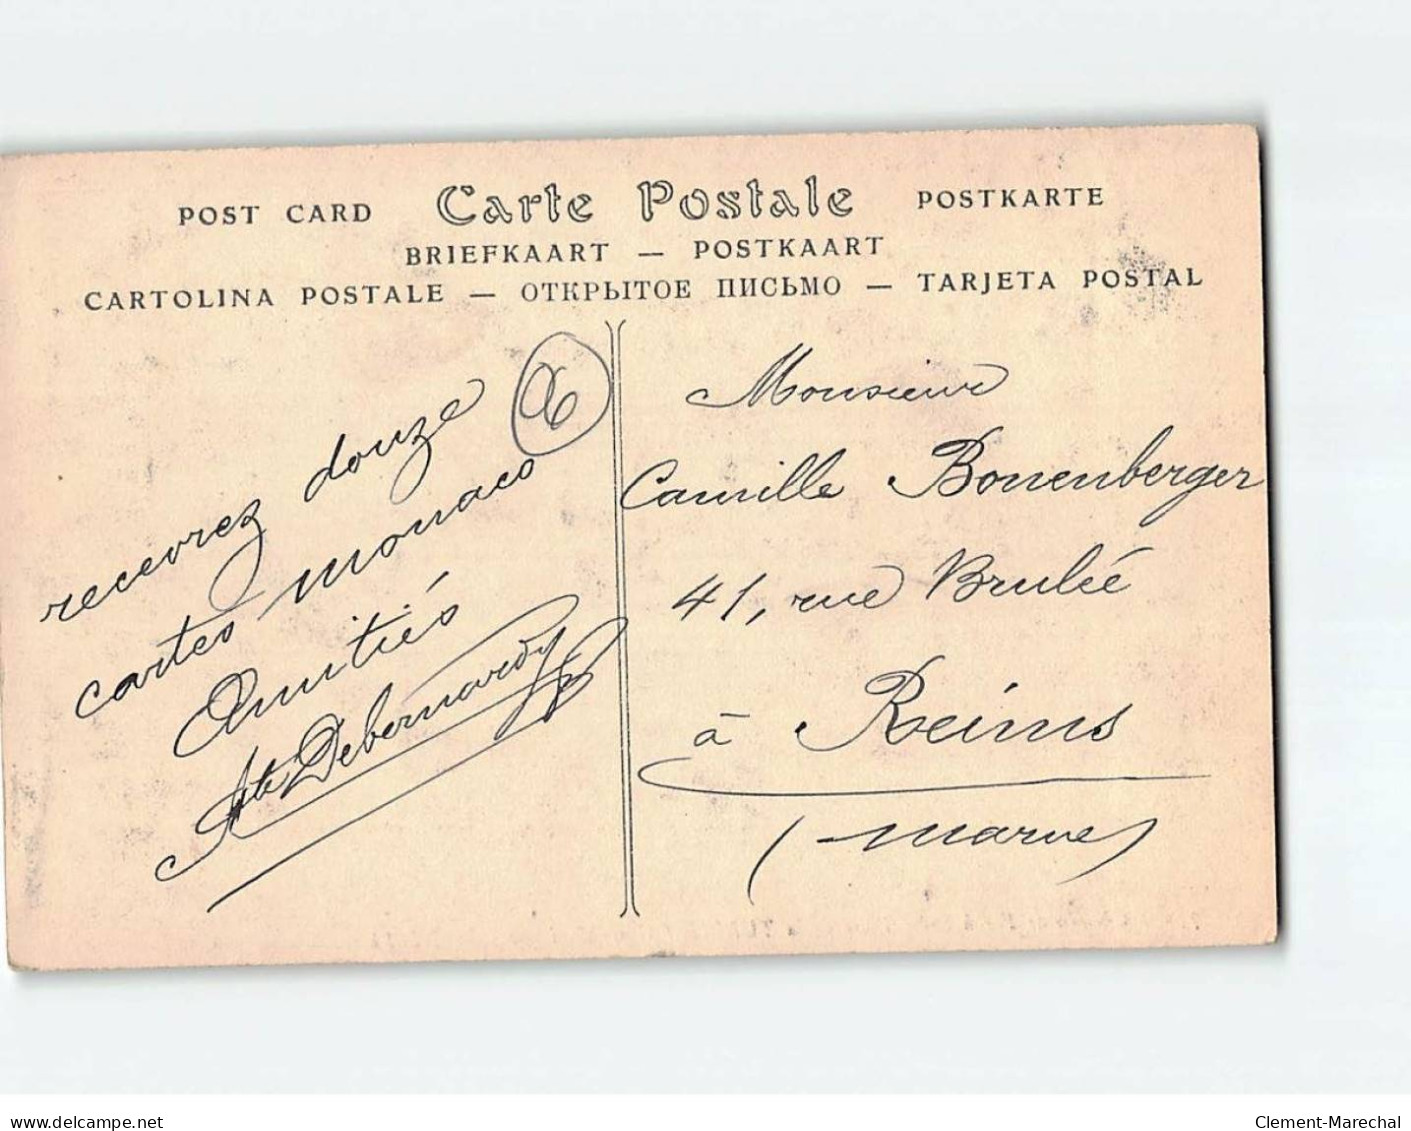 POST CARD Carte Postale POSTKARTE
BRIEFKAART — POSTKAART
CARTOLINA POSTALE — ОТКРЫТОЕ ПИСЬМО — TARJETA POSTAL
06
recevrez douze
cartes monaco
Amitiés
Debernardy
Monsieur
Camille Bonenberger
41, rue Brulée
à Reims
(Marne)
www.delcampe.net
Clement-Marechal